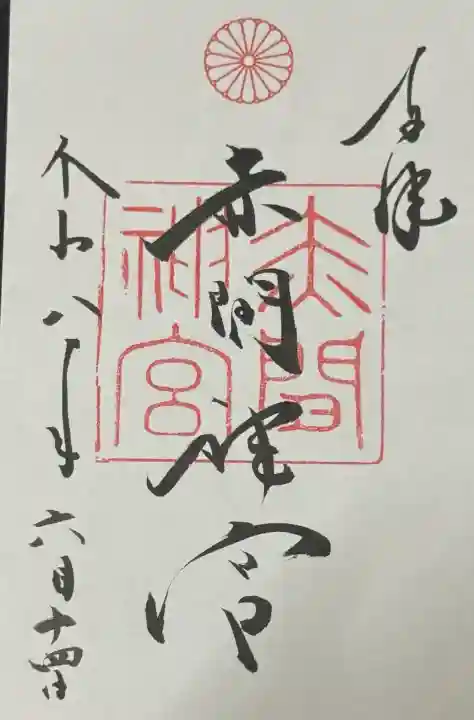 奉拝
赤間神宮
赤間
神宮
令和八年六月十四日